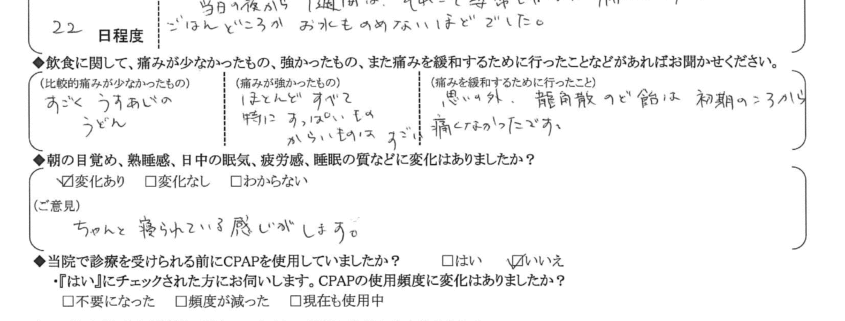 当日の夜から 1週間は、
22 日程度
ごはんどころか お水ものめないほどでした。
◆飲食に関して、痛みが少なかったもの、強かったもの、また痛みを緩和するために行ったことなどがあればお聞かせください。
(比較的痛みが少なかったもの)
すごく うすあじの
うどん
(痛みが強かったもの)
ほとんど すべて
特に すっぱいもの
からいものは すごく
(痛みを緩和するために行ったこと)
思いの外、龍角散のど飴は 初期のころから
痛くなかったです。
◆朝の目覚め、熟睡感、日中の眠気、疲労感、睡眠の質などに変化はありましたか?
☑変化あり □変化なし □わからない
(ご意見)
ちゃんと 寝られている 感じがします。
◆当院で診療を受けられる前にCPAPを使用していましたか? □はい ☑いいえ
・『はい』にチェックされた方にお伺いします。CPAPの使用頻度に変化はありましたか?
□不要になった □頻度が減った □現在も使用中